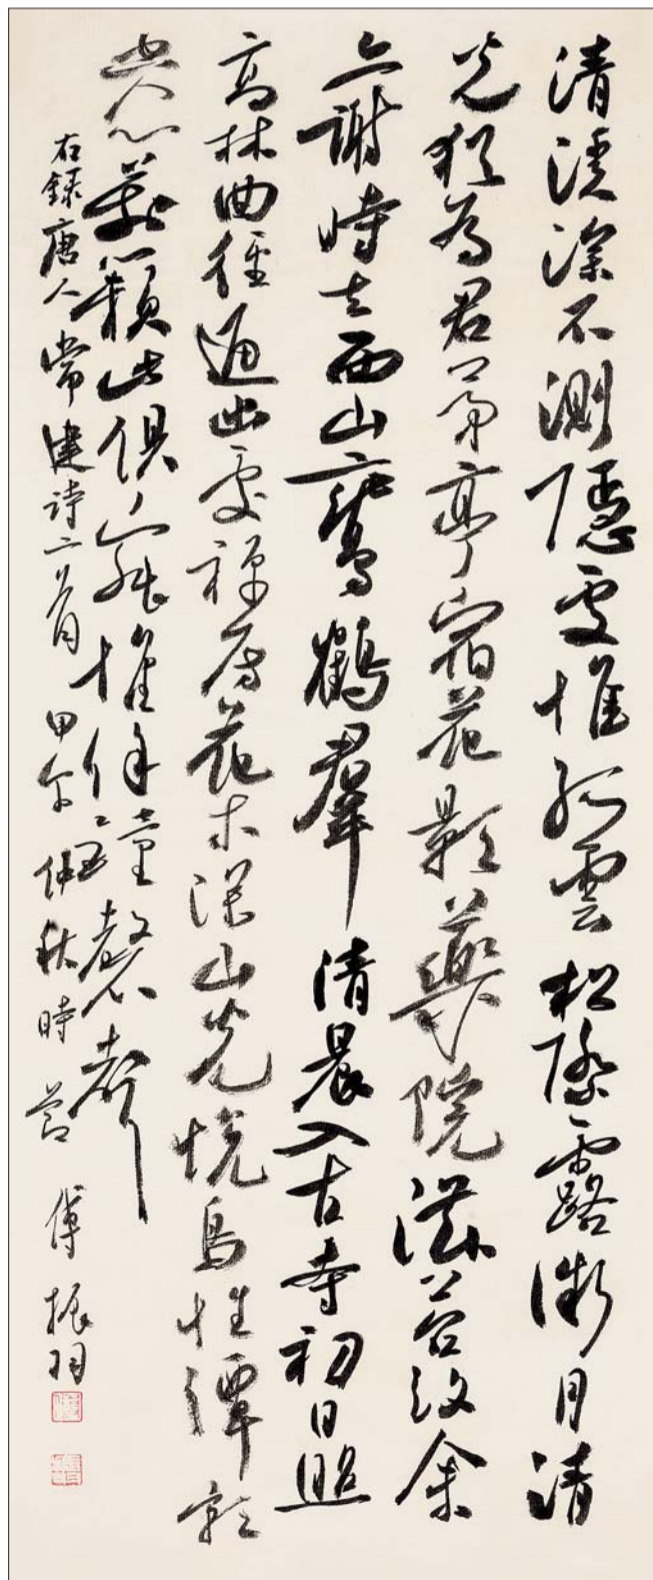 清溪深不測隱處惟孤雲松際露微月清
光猶為君茅亭宿花影藥院滋苔紋余
亦謝時去西山鸞鶴羣 清晨入古寺初日照
高林曲徑通幽處禪房花木深山光悅鳥性潭影
空人心萬籟此俱寂惟餘鐘磬聲
右錄唐人常建詩二首 甲午仲秋時節 傅振羽